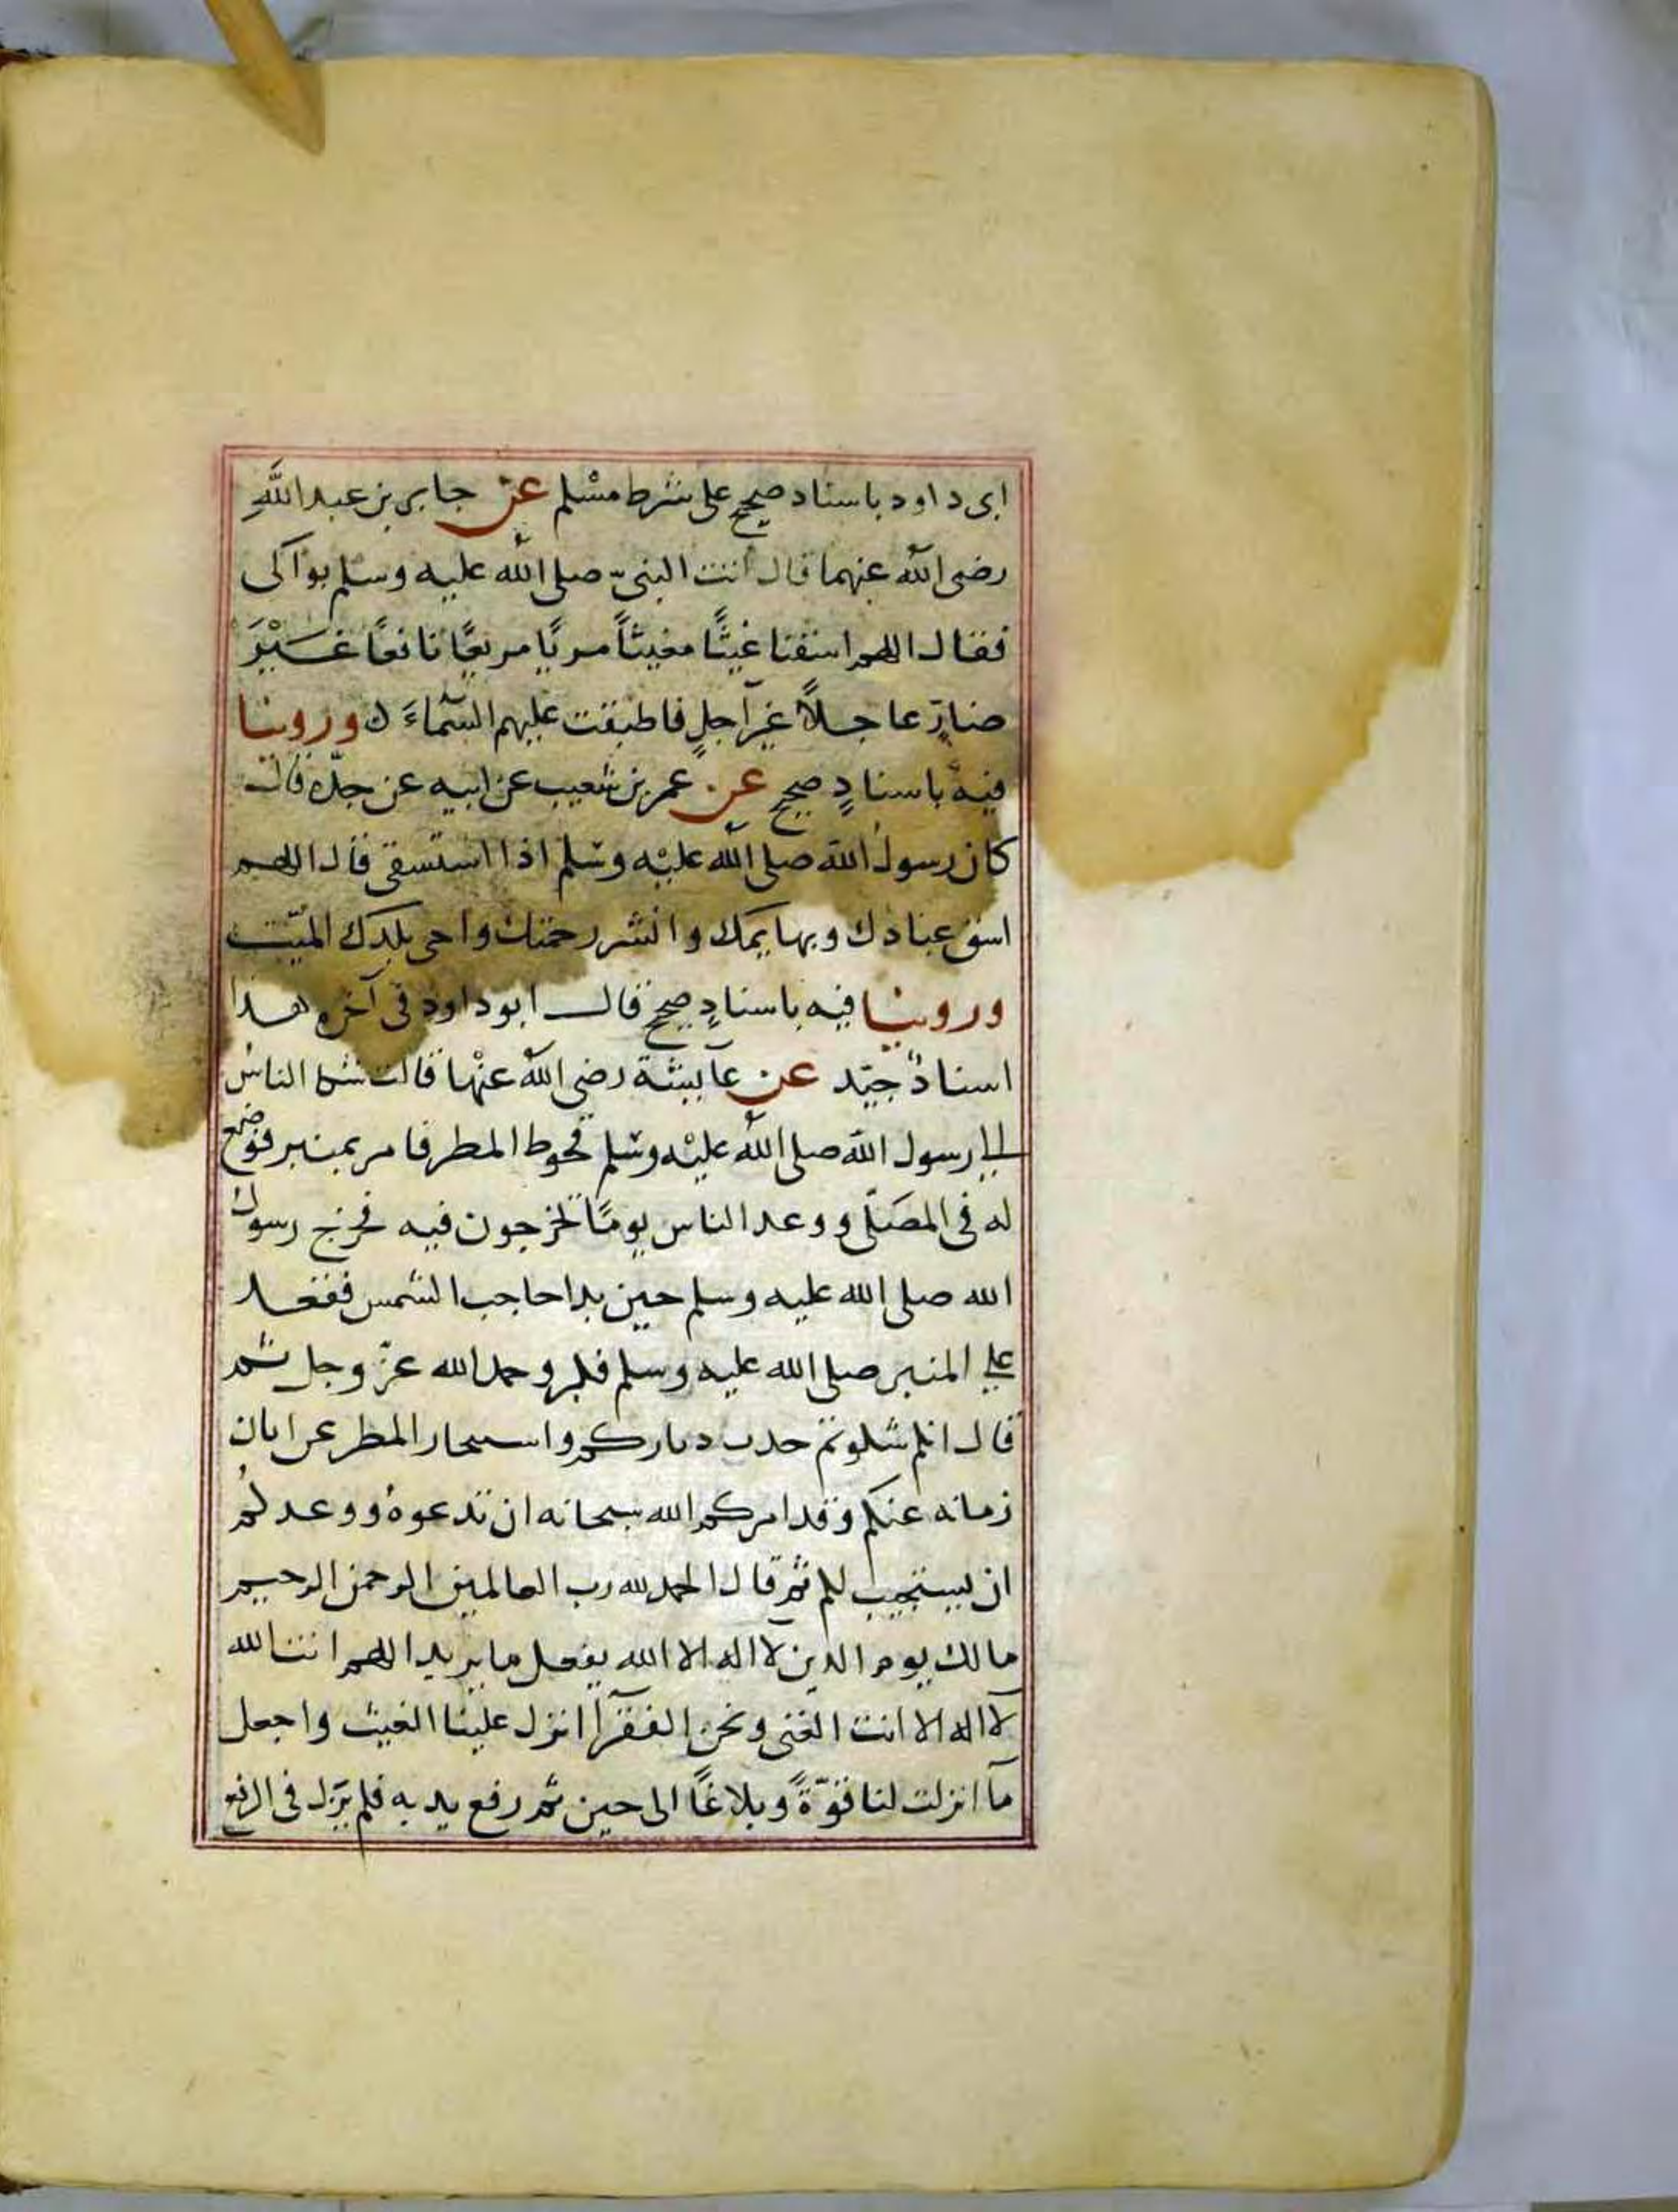 ابى داود باسناد صحيح على شرط مسْلم عن جابر بن عبد اللَّهِ
رضى الله عنهما قال اتت النبىّ صلى الله عليه وسلم بواكى
فقال اللهم اسقنا غيثًا مغيثاً مريًا مريعًا نافعًا غَيْرَ
ضارٍ عاجلاً غير آجلٍ فاطبقت عليهم السّماءَ وروينا
فيه باسنادٍ صحيح عن عمر بن شعيب عن ابيه عن جدّه قال
كان رسول الله صلى الله عليْه وسلم اذا استسقى قال اللهم
اسق عبادك وبهايمك وانشر رحمتك واحى بلدك الميّت
وروينا فيه باسنادٍ صحيح قال ابو داود فى آخره هذا
اسنادٌ جيّد عن عايشة رضى الله عنْها قالت شكا الناسُ
الى رسول الله صلى الله عليْه وسلم قحوط المطر فامر بمنبر فوضع
له فى المصَلّى ووعد الناس يومًا يخرجون فيه فخرج رسول
الله صلى الله عليه وسلم حين بدا حاجب الشمس فقعد
على المنبر صلى الله عليه وسلم فكبر وحمد الله عزّ وجل ثم
قال انكم شكوتم جدب دياركم واستيخار المطر عن ابان
زمانه عنكم وقد امركم الله سبحانه ان تدعوهُ ووعدكُم
ان يستجيب لكم ثم قال الحمد لله رب العالمين الرحمن الرحيم
مالك يوم الدين لا اله الا الله يفعل ما يريد اللهم انت الله
لا اله الا انت الغنى ونحن الفقرآ انزل علينا الغيث واجعل
مآ انزلت لنا قوّةً وبلاغًا الى حين ثم رفع يديه فلم يزل فى الرفع